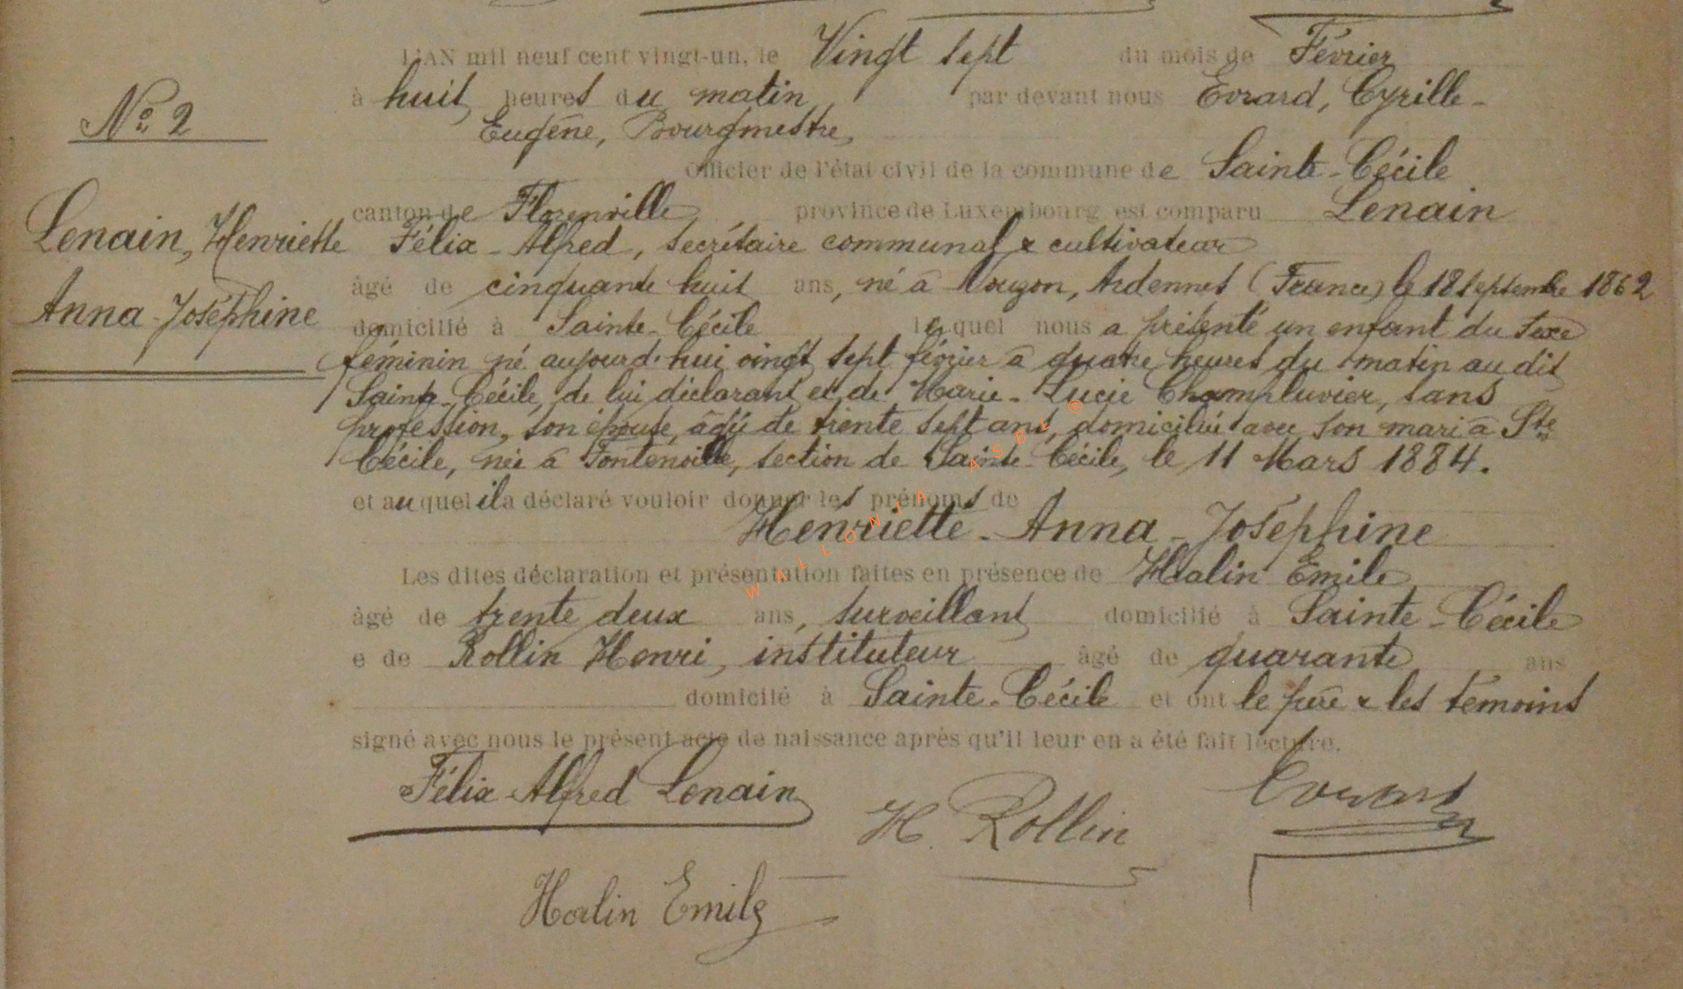 L'AN mil neuf cent vingt-un, le Vingt sept du mois de Février
à huit heures du matin par devant nous Evrard, Cyrille-
Eugène, Bourgmestre
Officier de l'état civil de la commune de Sainte-Cécile
canton de Florenville province de Luxembourg est comparu Lenain
Félix-Alfred, secrétaire communal & cultivateur
âgé de cinquante huit ans, né à Mouzon, Ardennes (France) le 18 septembre 1862
domicilié à Sainte-Cécile lequel nous a présenté un enfant du sexe
féminin né aujourd'hui vingt sept février à quatre heures du matin au dit
Sainte-Cécile, de lui déclarant et de Marie-Lucie Champluvier, sans
profession, son épouse, âgée de trente sept ans, domiciliée avec son mari à Ste
Cécile, née à Fontenoille, section de Sainte-Cécile, le 11 Mars 1884.
et auquel il a déclaré vouloir donner les prénoms de
Henriette-Anna-Joséphine
Les dites déclaration et présentation faites en présence de Halin Emile
âgé de trente deux ans, surveillant domicilié à Sainte-Cécile
e de Rollin Henri, instituteur âgé de quarante ans
domicilé à Sainte-Cécile et ont le père & les témoins
signé avec nous le présent acte de naissance après qu'il leur en a été fait lecture.
No 2
Lenain, Henriette
Anna-Joséphine
Félix Alfred Lenain
H. Rollin
Evrard
Halin Emile